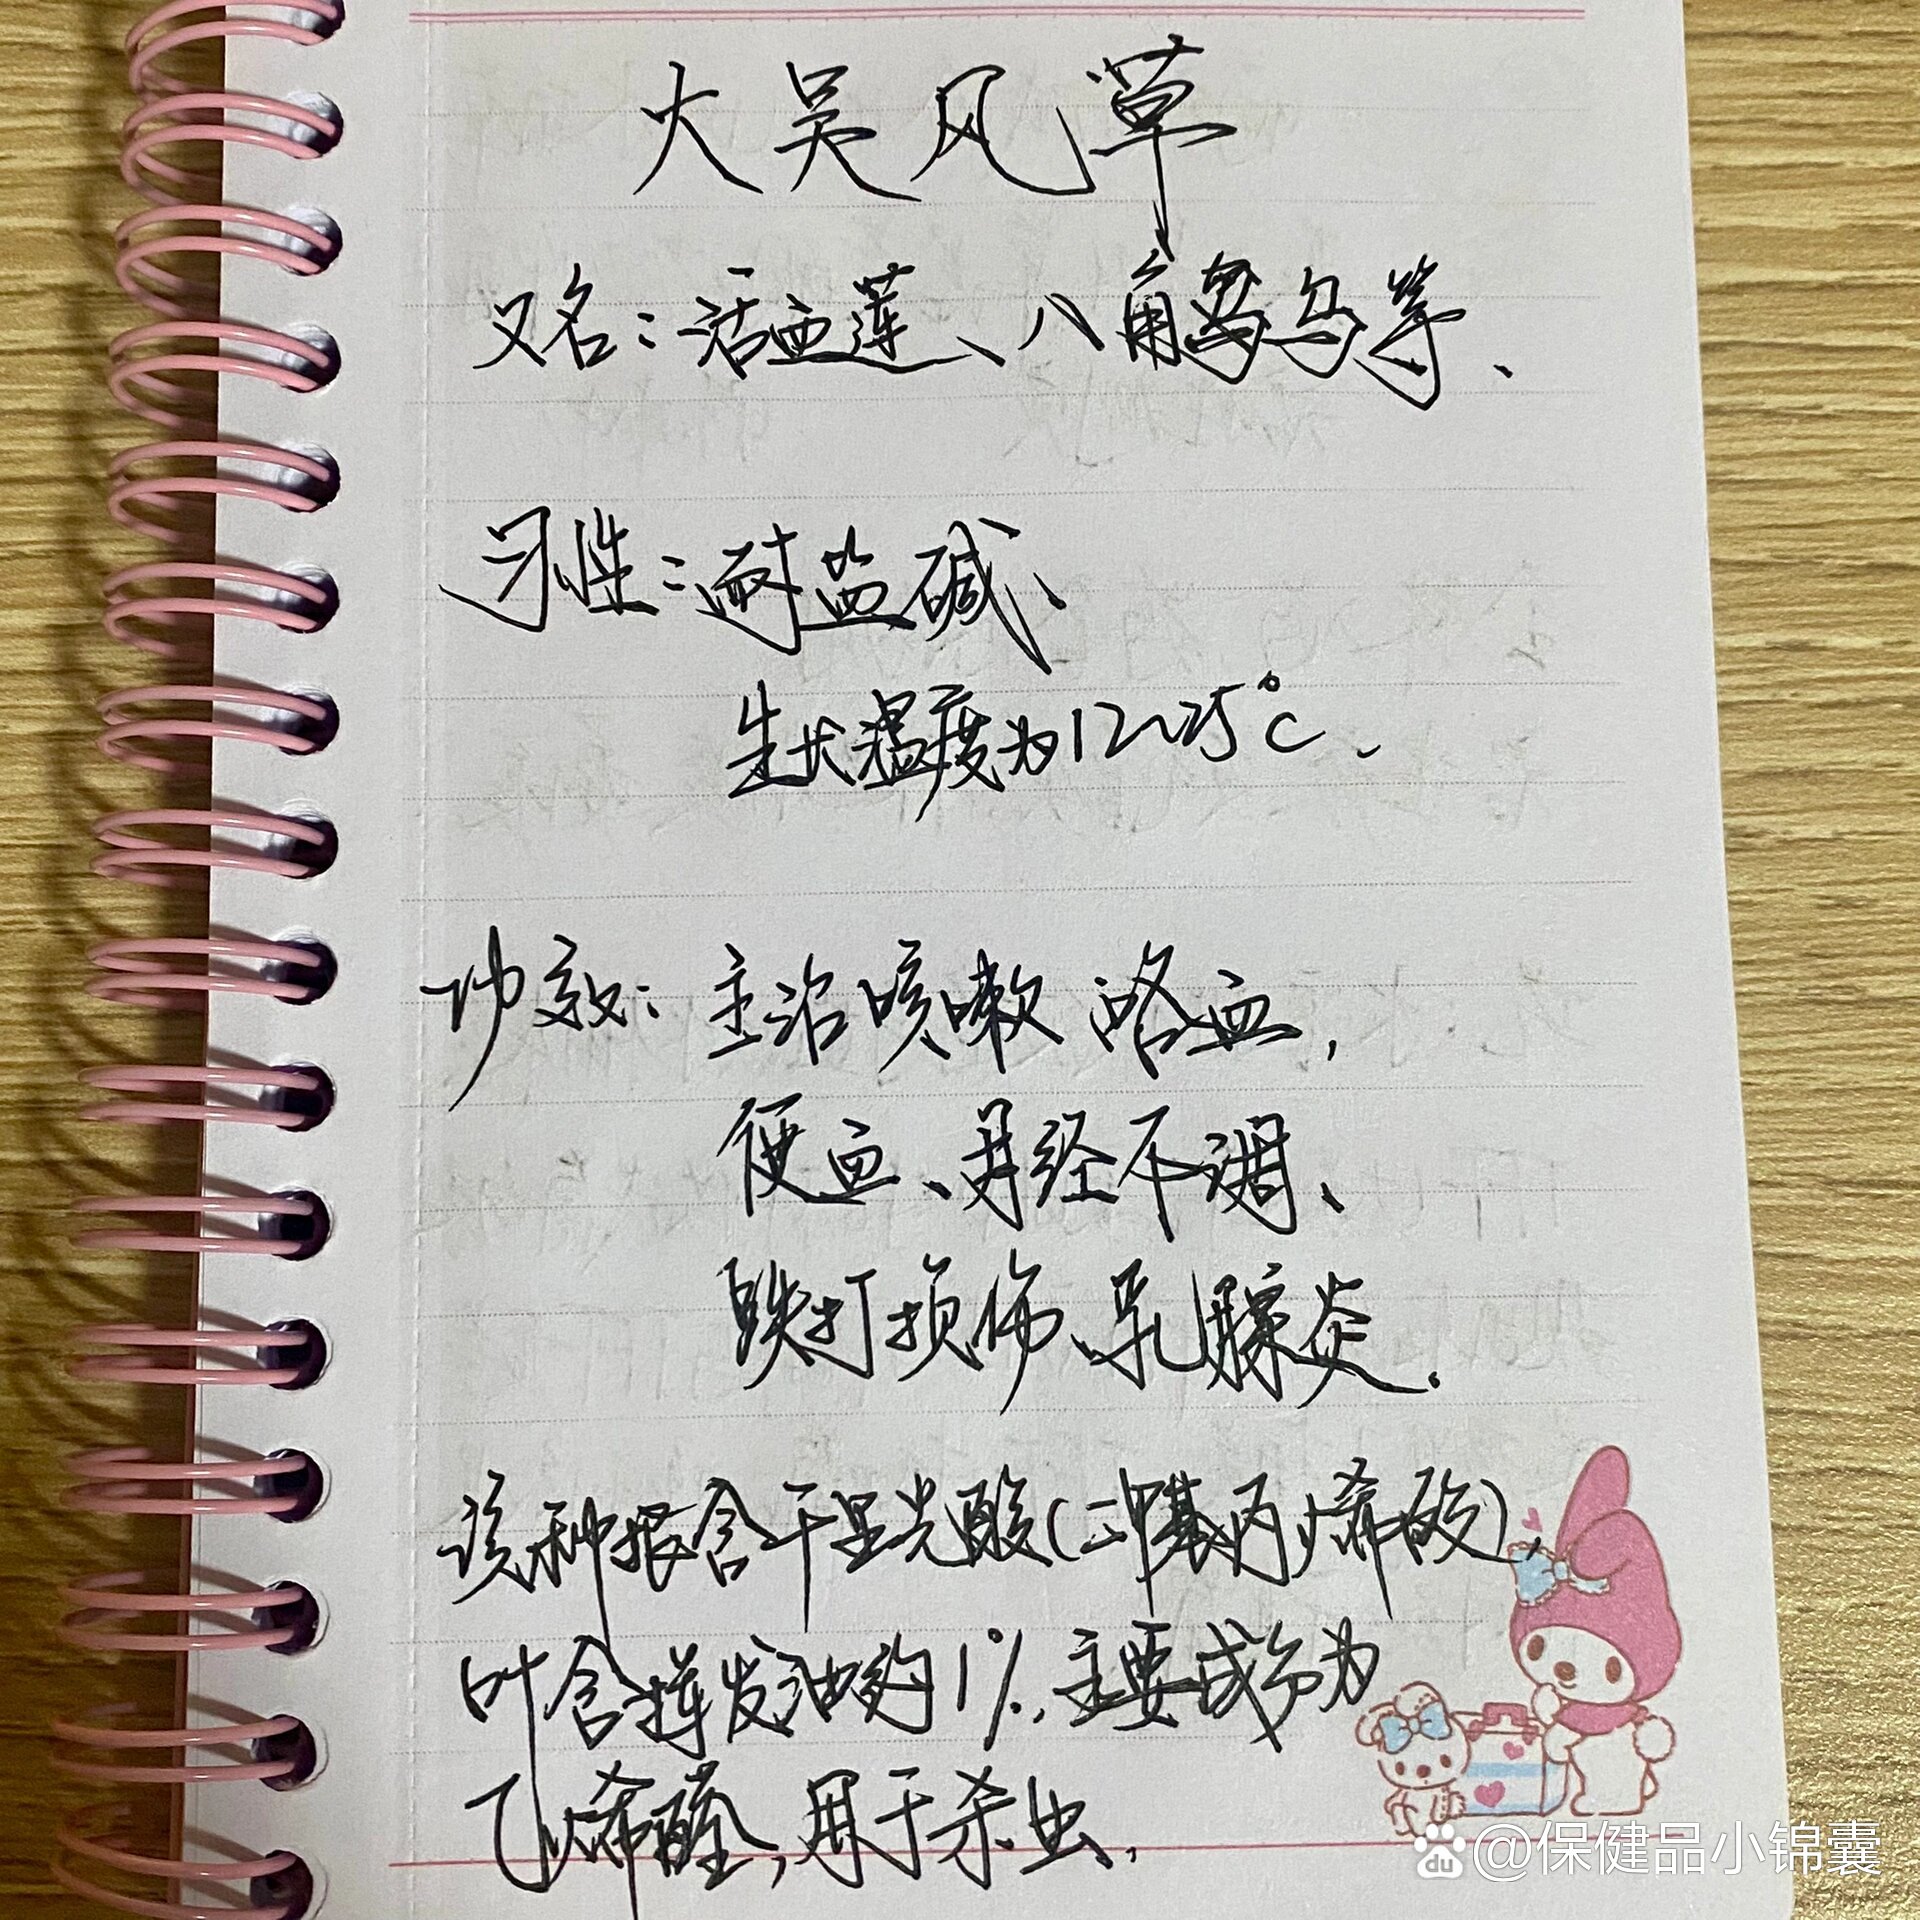 大吴风草
又名：活血莲、八角乌乌等、
习性：耐盐碱、
生长温度为12~25℃、
功效：主治咳嗽 咯血，
便血、月经不调、
跌打损伤、乳腺炎．
该种根含千里光酸（二甲基丙烯酸），
叶含挥发油约1%，主要成分为
乙烯醛，用于杀虫，
@保健品小锦囊